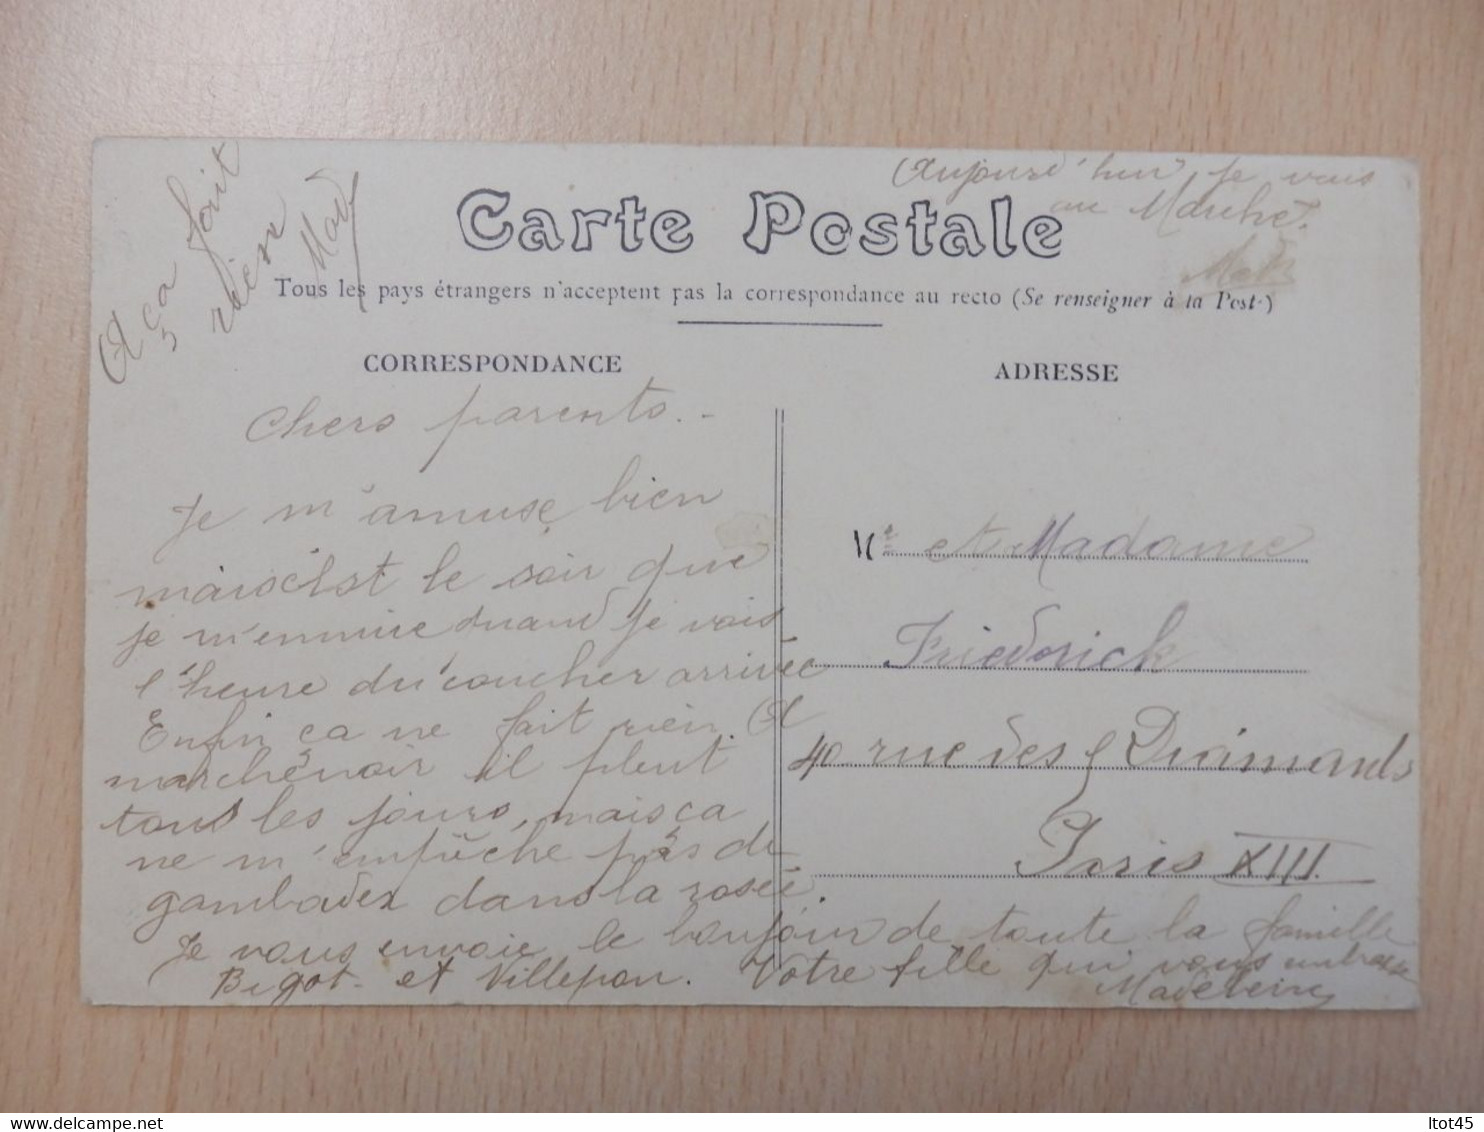 Aujourd'hui, je vais
au Marché.
Mad
A ça fait
rien
Mad
Carte Postale
Tous les pays étrangers n'acceptent pas la correspondance au recto (Se renseigner à la Poste)
CORRESPONDANCE
ADRESSE
Chers parents.-
Je m'amuse bien
mais c'est le soir que
je m'ennuie quand je vois
l'heure du coucher arrivée
Enfin ça ne fait rien. A
marchenoir il pleut
tous les jours, mais ça
ne m'empêche pas de
gambader dans la rosée.
Je vous envoie le bonjour de toute la famille
Bigot et Villepon. Votre fille qui vous embrasse
Madeleine
Mr et Madame
Friedorick
40 rue des Diamants
Paris XIII
ltot45